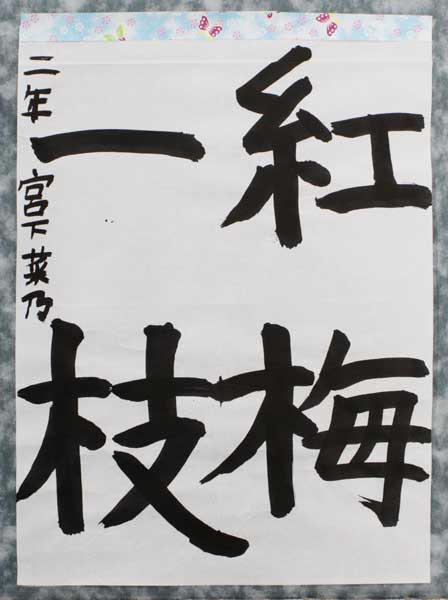 紅梅
一枝
二年 宮下菜乃